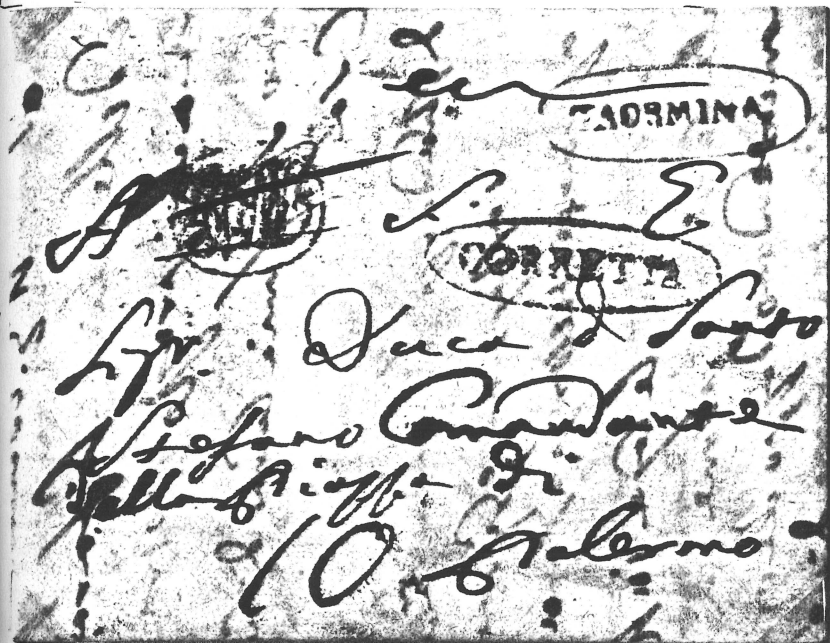 TAORMINA
A S. E.
CORRETTA
Sigr. Duca di Santo
Stefano Comandante
della Piazza di
Palermo